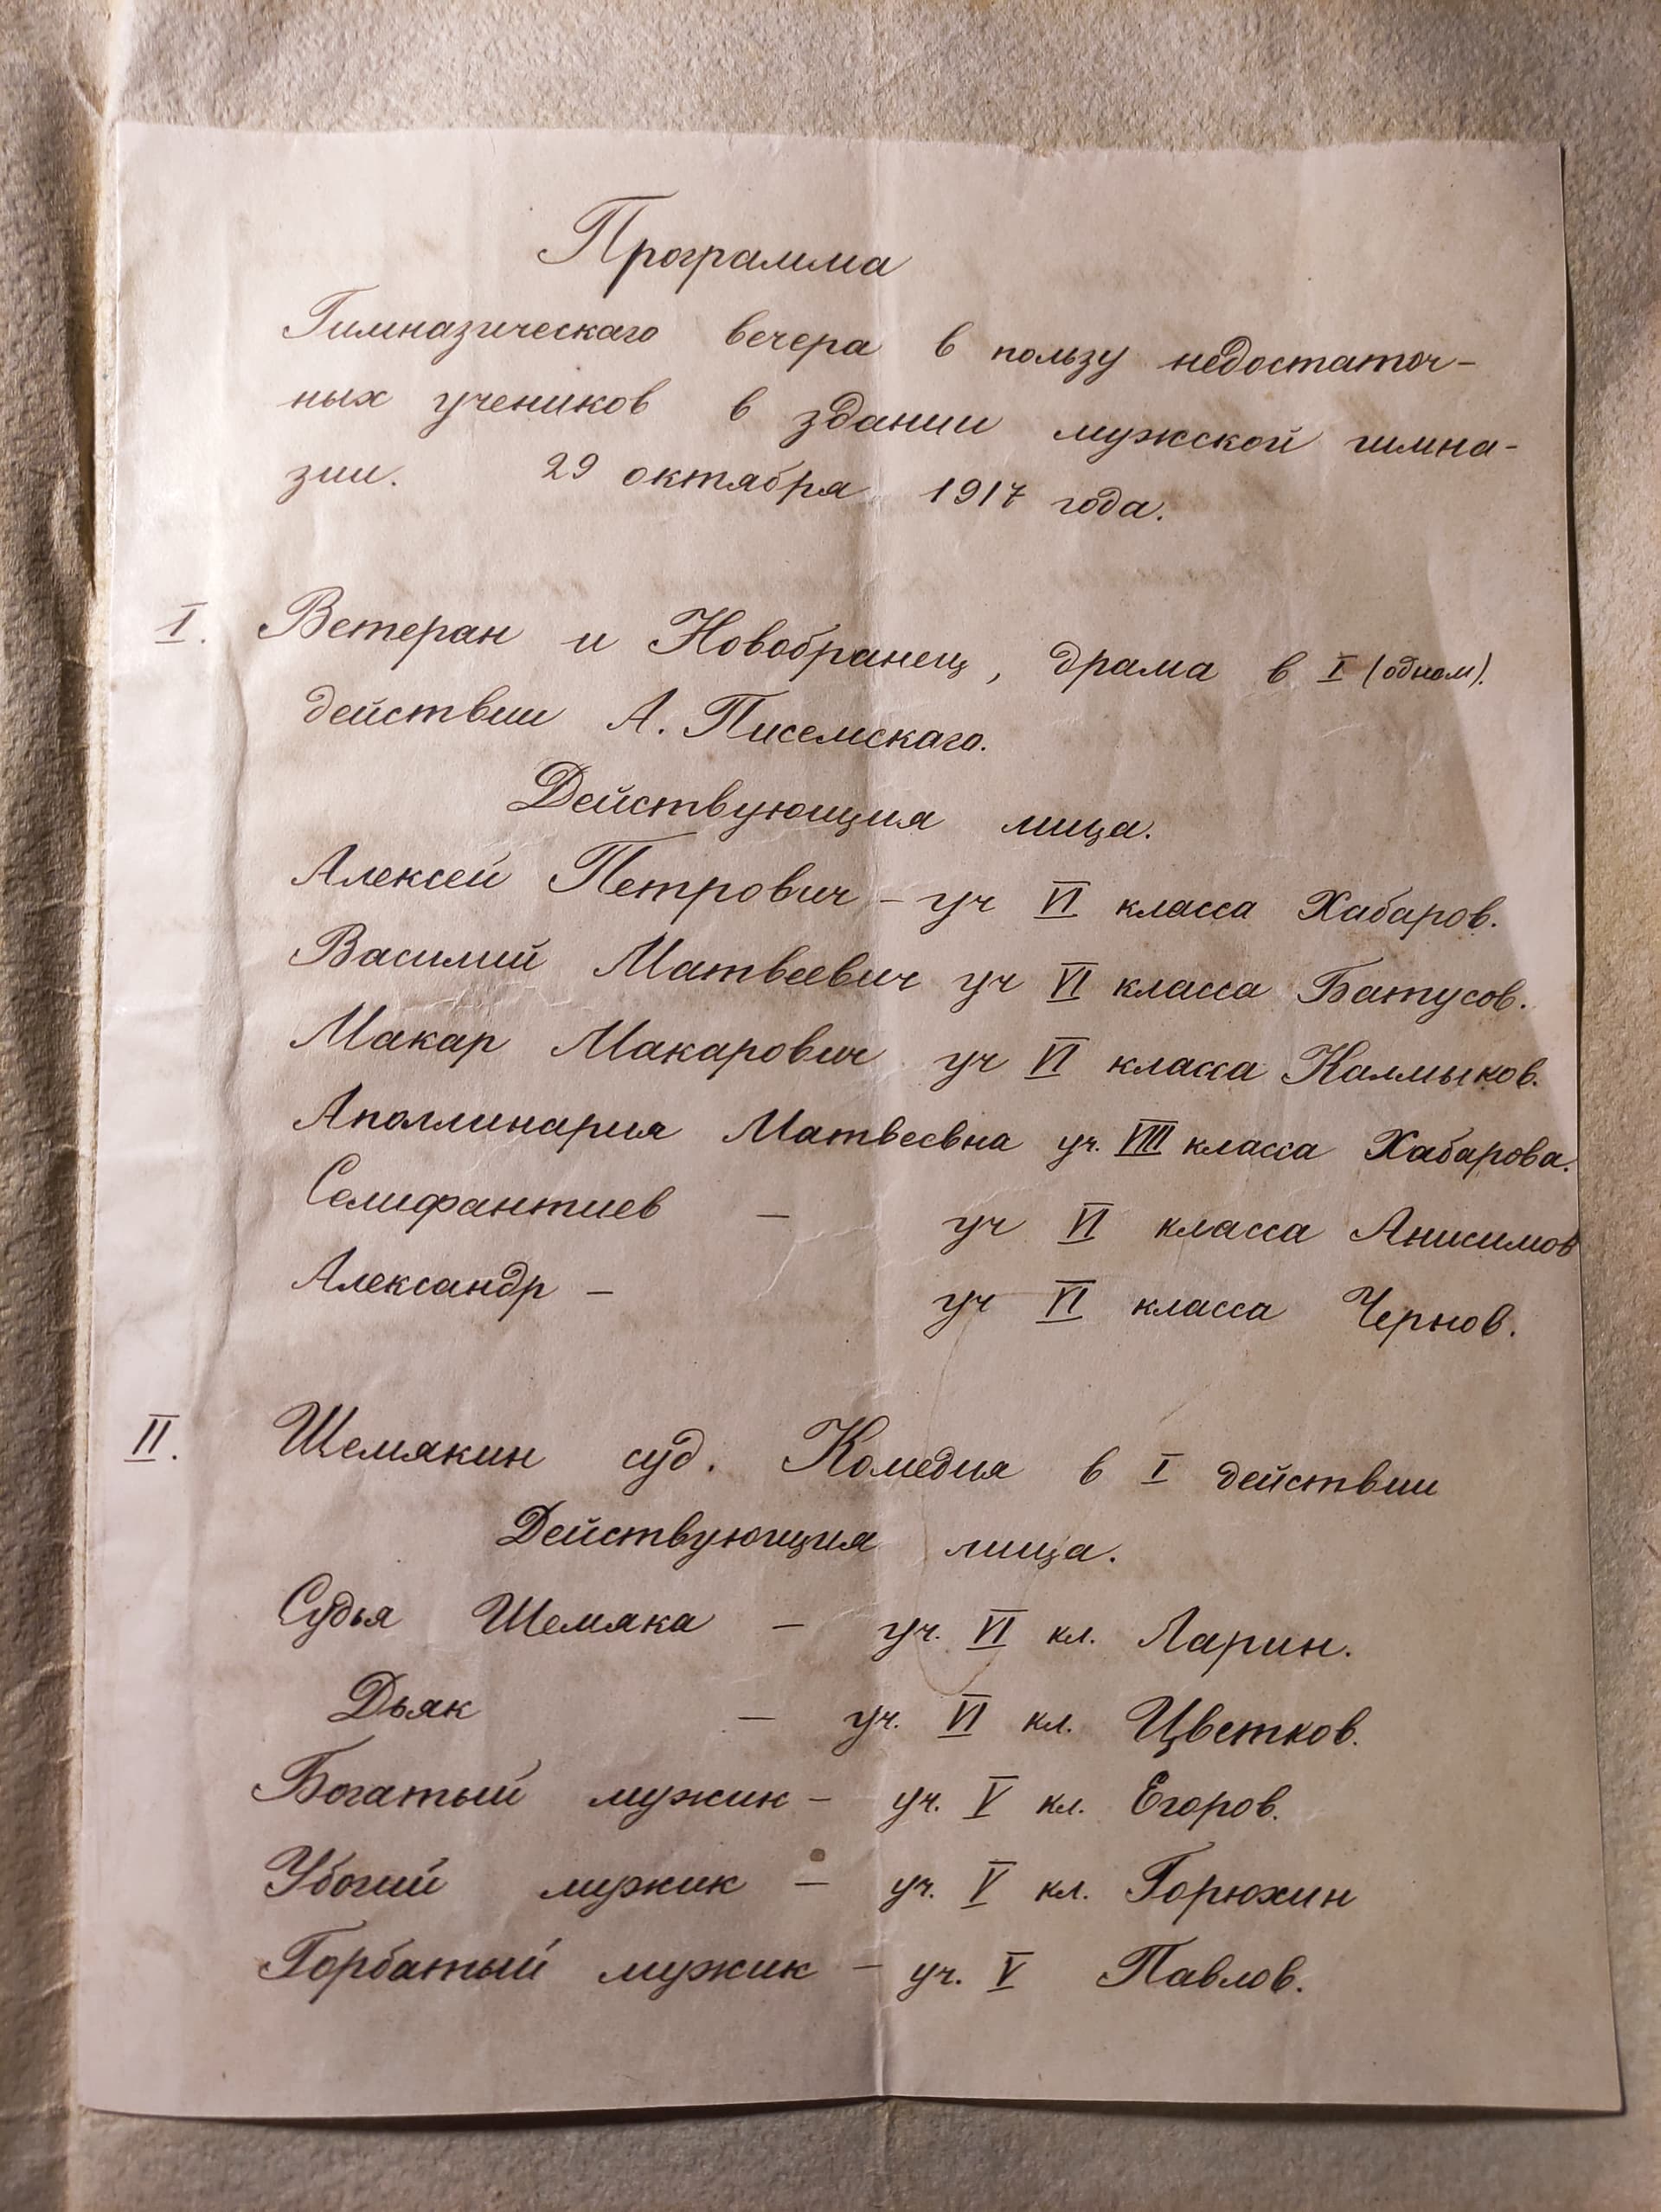 Программа
Гимназическаго вечера в пользу недостаточ-
ных учеников в здании мужской гимна-
зии. 29 октября 1917 года.
I. Ветеран и Новобранец, драма в I (одном).
действии А. Писемскаго.
Действующия лица.
Алексей Петрович - уч VI класса Хабаров.
Василий Матвеевич уч VI класса Батусов.
Макар Макарович уч VI класса Калмыков.
Аполлинария Матвеевна уч. VIII класса Хабарова.
Селифантиев - уч VI класса Анисимов
Александр - уч VI класса Чернов.
II. Шемякин суд. Комедия в I действии
Действующия лица.
Судья Шемяка - уч. VI кл. Ларин.
Дьяк - уч. VI кл. Цветков.
Богатый мужик - уч. V кл. Егоров.
Убогий мужик - уч. V кл. Горюхин
Горбатый мужик - уч. V Павлов.